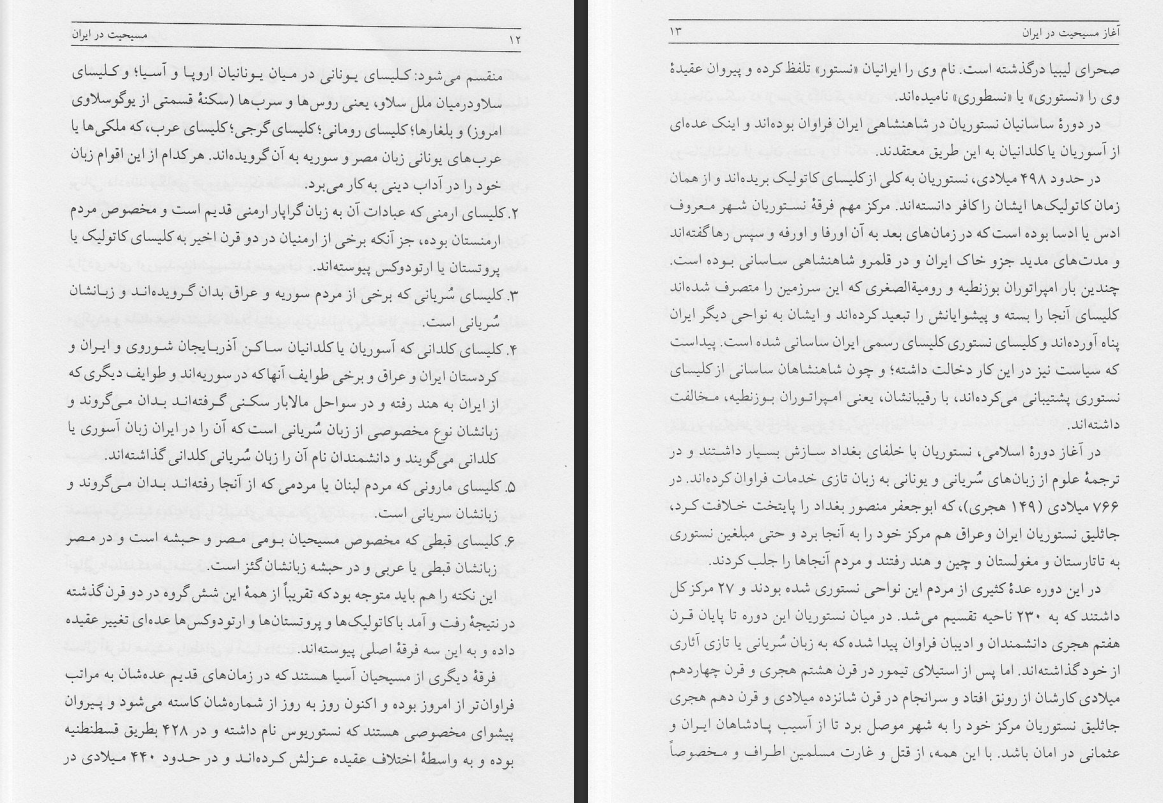 ۱۲
مسیحیت در ایران
منقسم می‌شود: کلیسای یونانی در میان یونانیان اروپا و آسیا؛ و کلیسای
سلاودرمیان ملل سلاو، یعنی روس‌ها و سرب‌ها (سکنهٔ قسمتی از یوگوسلاوی
امروز) و بلغارها؛ کلیسای رومانی؛ کلیسای گرجی؛ کلیسای عرب، که ملکی‌ها یا
عرب‌های یونانی زبان مصر و سوریه به آن گرویده‌اند. هر کدام از این اقوام زبان
خود را در آداب دینی به کار می‌برد.
۲. کلیسای ارمنی که عبادات آن به زبان گراپار ارمنی قدیم است و مخصوص مردم
ارمنستان بوده، جز آنکه برخی از ارمنیان در دو قرن اخیر به کلیسای کاتولیک یا
پروتستان یا ارتودوکس پیوسته‌اند.
۳. کلیسای سُریانی که برخی از مردم سوریه و عراق بدان گرویده‌اند و زبانشان
سُریانی است.
۴. کلیسای کلدانی که آسوریان یا کلدانیان ساکن آذربایجان شوروی و ایران و
کردستان ایران و عراق و برخی طوایف آنها که در سوریه‌اند و طوایف دیگری که
از ایران به هند رفته و در سواحل مالابار سکنی گرفته‌اند بدان می‌گروند و
زبانشان نوع مخصوصی از زبان سُریانی است که آن را در ایران زبان آسوری یا
کلدانی می‌گویند و دانشمندان نام آن را زبان سُریانی کلدانی گذاشته‌اند.
۵. کلیسای مارونی که مردم لبنان یا مردمی که از آنجا رفته‌اند بدان می‌گروند و
زبانشان سریانی است.
۶. کلیسای قبطی که مخصوص مسیحیان بومی مصر و حبشه است و در مصر
زبانشان قبطی یا عربی و در حبشه زبانشان گئز است.
این نکته را هم باید متوجه بود که تقریباً از همهٔ این شش گروه در دو قرن گذشته
در نتیجهٔ رفت و آمد با کاتولیک‌ها و پروتستان‌ها و ارتودوکس‌ها عده‌ای تغییر عقیده
داده و به این سه فرقهٔ اصلی پیوسته‌اند.
فرقهٔ دیگری از مسیحیان آسیا هستند که در زمان‌های قدیم عده‌شان به مراتب
فراوان‌تر از امروز بوده و اکنون روز به روز از شماره‌شان کاسته می‌شود و پیروان
پیشوای مخصوصی هستند که نستوریوس نام داشته و در ۴۲۸ بطریق قسطنطنیه
بوده و به واسطهٔ اختلاف عقیده عزلش کرده‌اند و در حدود ۴۴۰ میلادی در
آغاز مسیحیت در ایران
۱۳
صحرای لیبیا درگذشته است. نام وی را ایرانیان «نستور» تلفظ کرده و پیروان عقیدهٔ
وی را «نستوری» یا «نسطوری» نامیده‌اند.
در دورهٔ ساسانیان نستوریان در شاهنشاهی ایران فراوان بوده‌اند و اینک عده‌ای
از آسوریان یا کلدانیان به این طریق معتقدند.
در حدود ۴۹۸ میلادی، نستوریان به کلی از کلیسای کاتولیک بریده‌اند و از همان
زمان کاتولیک‌ها ایشان را کافر دانسته‌اند. مرکز مهم فرقهٔ نستوریان شهر معروف
ادس یا ادسا بوده است که در زمان‌های بعد به آن اورفا و اورفه و سپس رها گفته‌اند
و مدت‌های مدید جزو خاک ایران و در قلمرو شاهنشاهی ساسانی بوده است.
چندین بار امپراتوران بوزنطیه و رومیةالصغری که این سرزمین را متصرف شده‌اند
کلیسای آنجا را بسته و پیشوایانش را تبعید کرده‌اند و ایشان به نواحی دیگر ایران
پناه آورده‌اند و کلیسای نستوری کلیسای رسمی ایران ساسانی شده است. پیداست
که سیاست نیز در این کار دخالت داشته؛ و چون شاهنشاهان ساسانی از کلیسای
نستوری پشتیبانی می‌کرده‌اند، با رقیبانشان، یعنی امپراتوران بوزنطیه، مخالفت
داشته‌اند.
در آغاز دورهٔ اسلامی، نستوریان با خلفای بغداد سازش بسیار داشتند و در
ترجمهٔ علوم از زبان‌های سُریانی و یونانی به زبان تازی خدمات فراوان کرده‌اند. در
۷۶۶ میلادی (۱۴۹ هجری)، که ابوجعفر منصور بغداد را پایتخت خلافت کرد،
جاثلیق نستوریان ایران وعراق هم مرکز خود را به آنجا برد و حتی مبلغین نستوری
به تاتارستان و مغولستان و چین و هند رفتند و مردم آنجاها را جلب کردند.
در این دوره عدهٔ کثیری از مردم این نواحی نستوری شده بودند و ۲۷ مرکز کل
داشتند که به ۲۳۰ ناحیه تقسیم می‌شد. در میان نستوریان این دوره تا پایان قرن
هفتم هجری دانشمندان و ادیبان فراوان پیدا شده که به زبان سُریانی یا تازی آثاری
از خود گذاشته‌اند. اما پس از استیلای تیمور در قرن هشتم هجری و قرن چهاردهم
میلادی کارشان از رونق افتاد و سرانجام در قرن شانزده میلادی و قرن دهم هجری
جاثلیق نستوریان مرکز خود را به شهر موصل برد تا از آسیب پادشاهان ایران و
عثمانی در امان باشد. با این همه، از قتل و غارت مسلمین اطراف و مخصوصاً